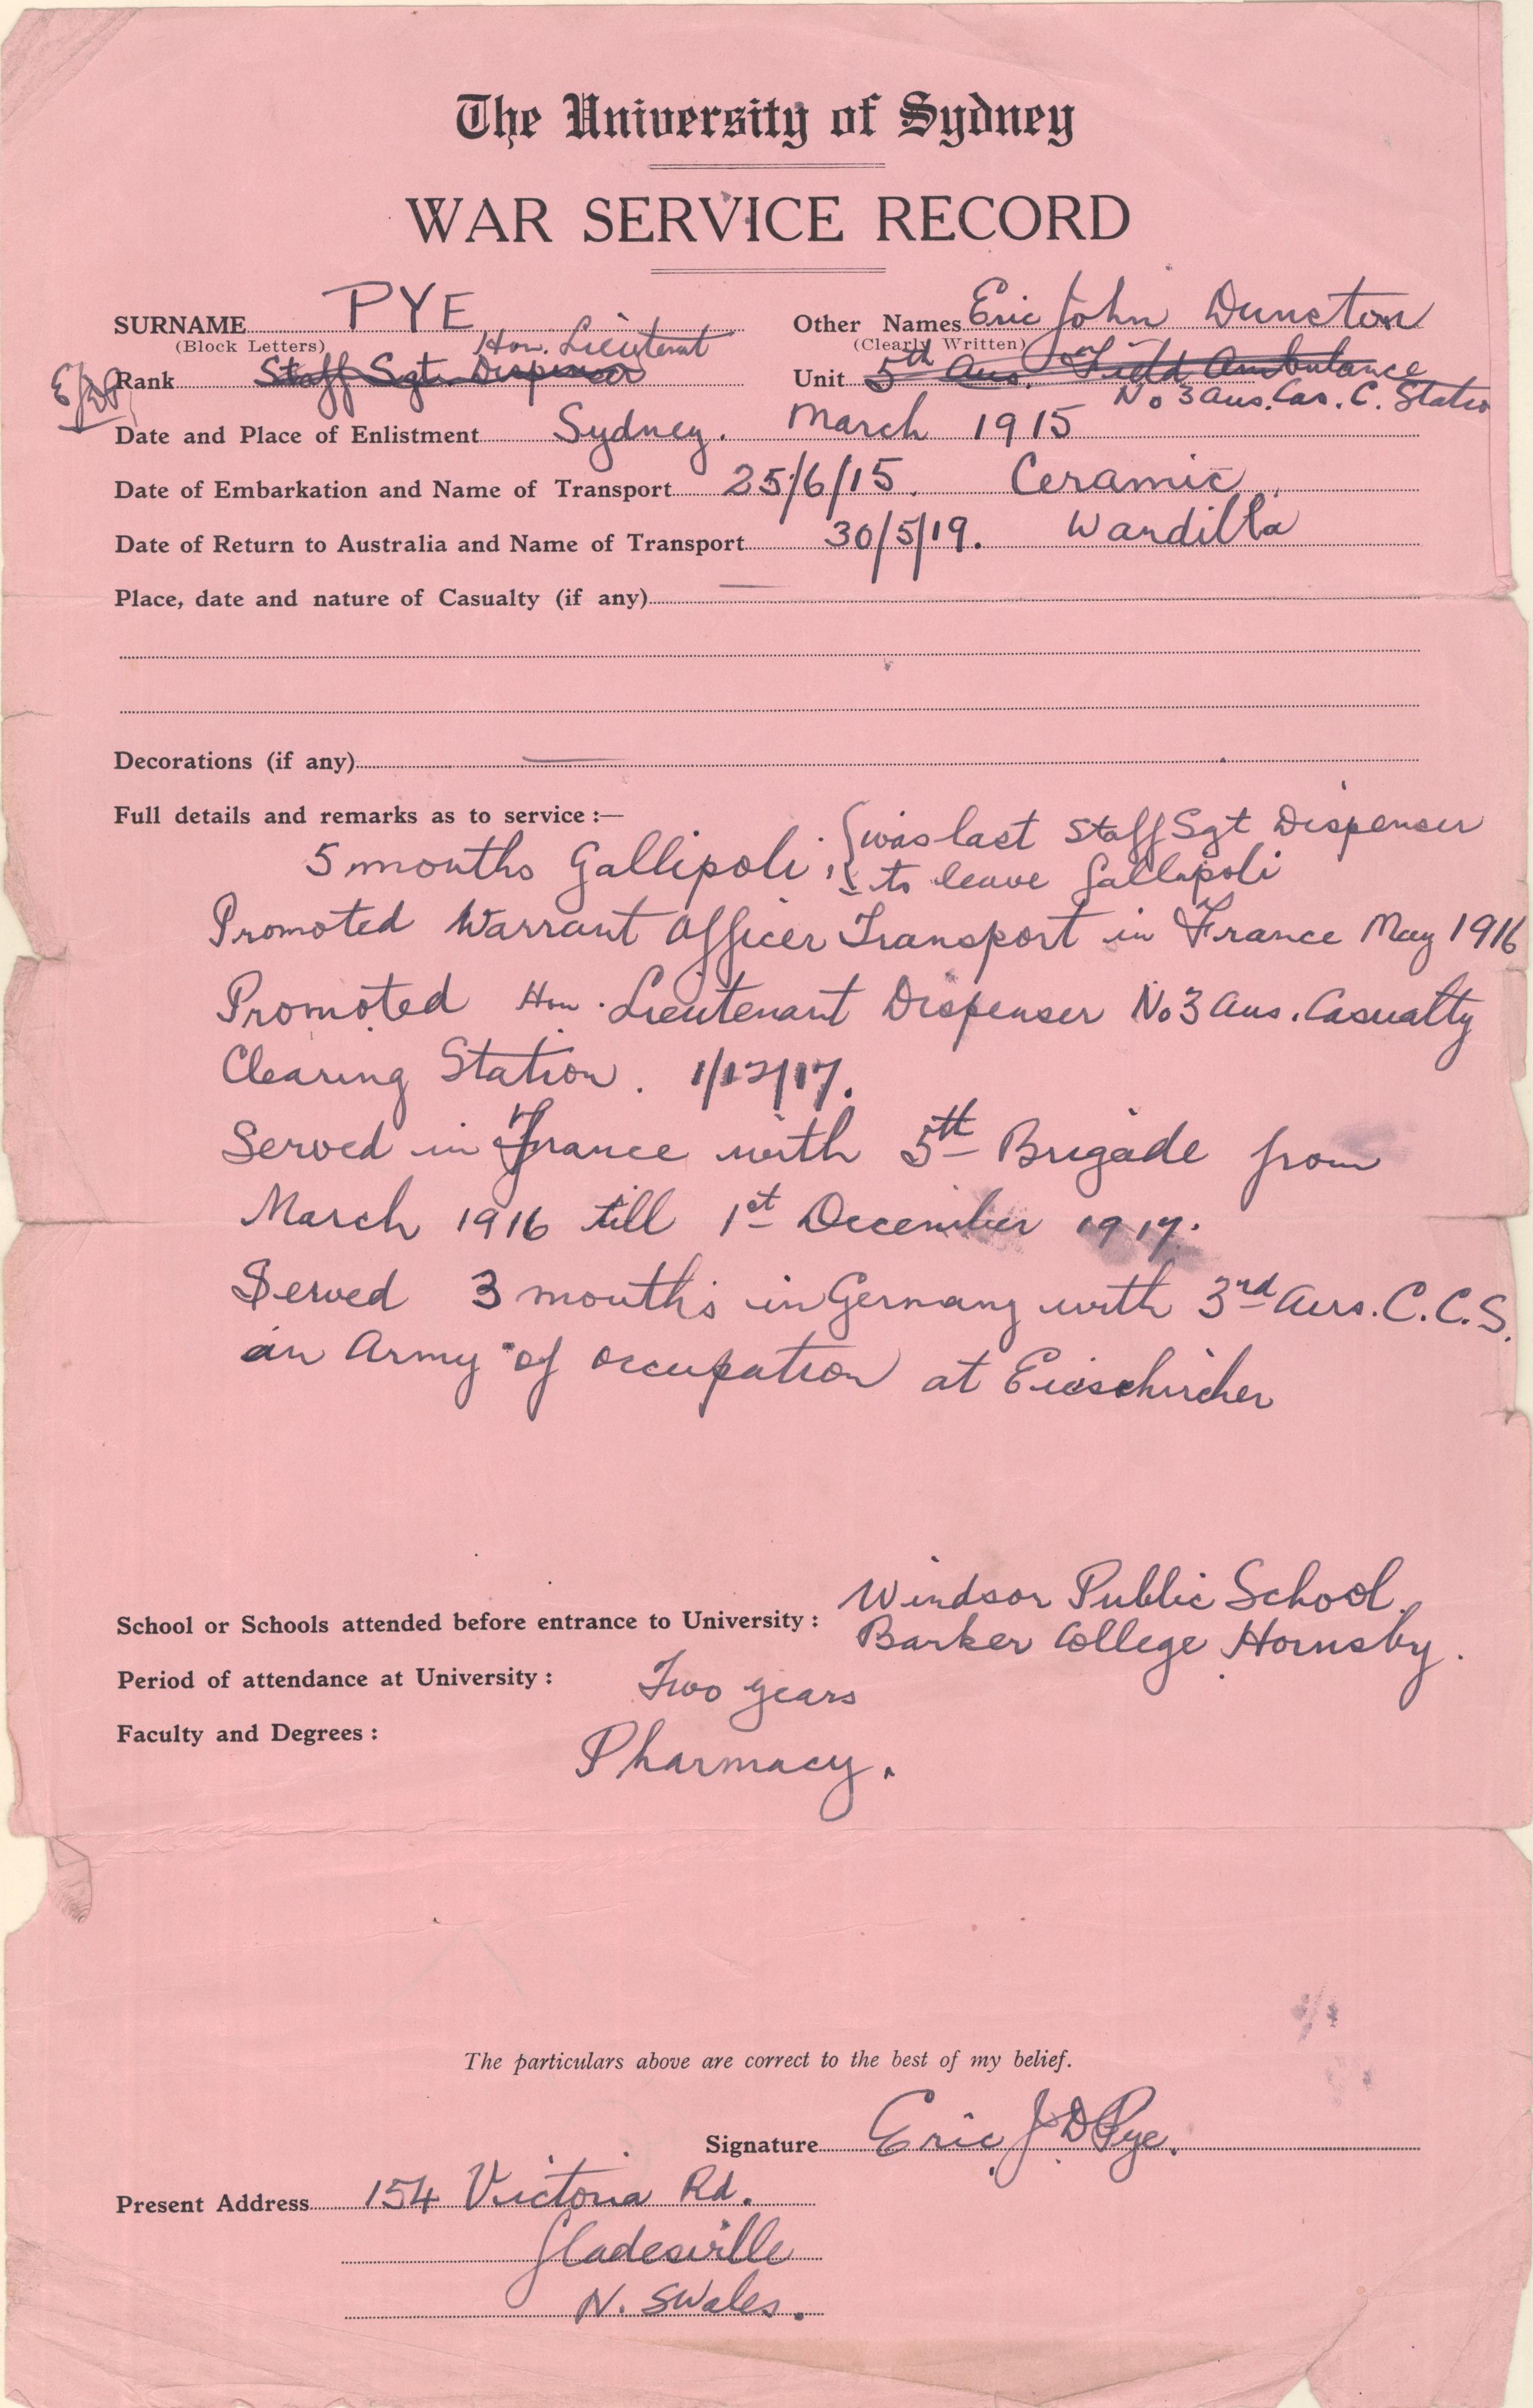 The University of Sydney
WAR SERVICE RECORD
SURNAME PYE Other Names Eric John Duncton
(Block Letters) (Clearly Written)
Hon. Lieutenant
Rank Staff Sgt. Dispenser Unit 5th Aus. Field Ambulance
No 3 Aus. Cas. C. Statio
Date and Place of Enlistment Sydney. March 1915
Date of Embarkation and Name of Transport 25/6/15. Ceramic
Date of Return to Australia and Name of Transport 30/5/19. Wardilla
Place, date and nature of Casualty (if any) —
Decorations (if any) —
Full details and remarks as to service :—
5 months Gallipoli. { was last Staff Sgt Dispenser
to leave Gallipoli
Promoted Warrant Officer Transport in France May 1916
Promoted Hon. Lieutenant Dispenser No 3 Aus. Casualty
Clearing Station. 1/12/17.
Served in France with 5th Brigade from
March 1916 till 1st December 1917.
Served 3 months in Germany with 3rd Aus. C.C.S.
in Army of occupation at
School or Schools attended before entrance to University : Windsor Public School
Barker College Hornsby.
Period of attendance at University : Two years
Faculty and Degrees : Pharmacy.
The particulars above are correct to the best of my belief.
Signature Eric J D Pye.
Present Address 154 Victoria Rd.
Gladesville
N. SWales.